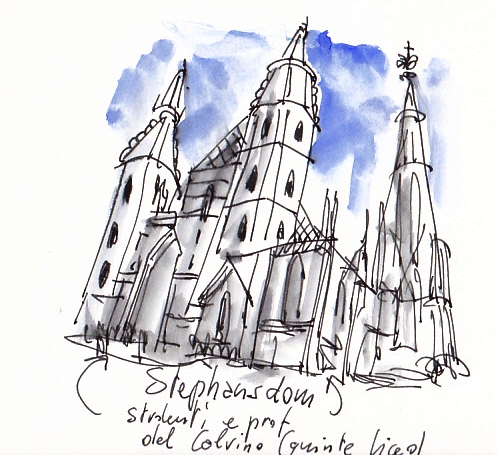 (Stephansdom)
studenti e prof
del Calvino (quinte liceo)